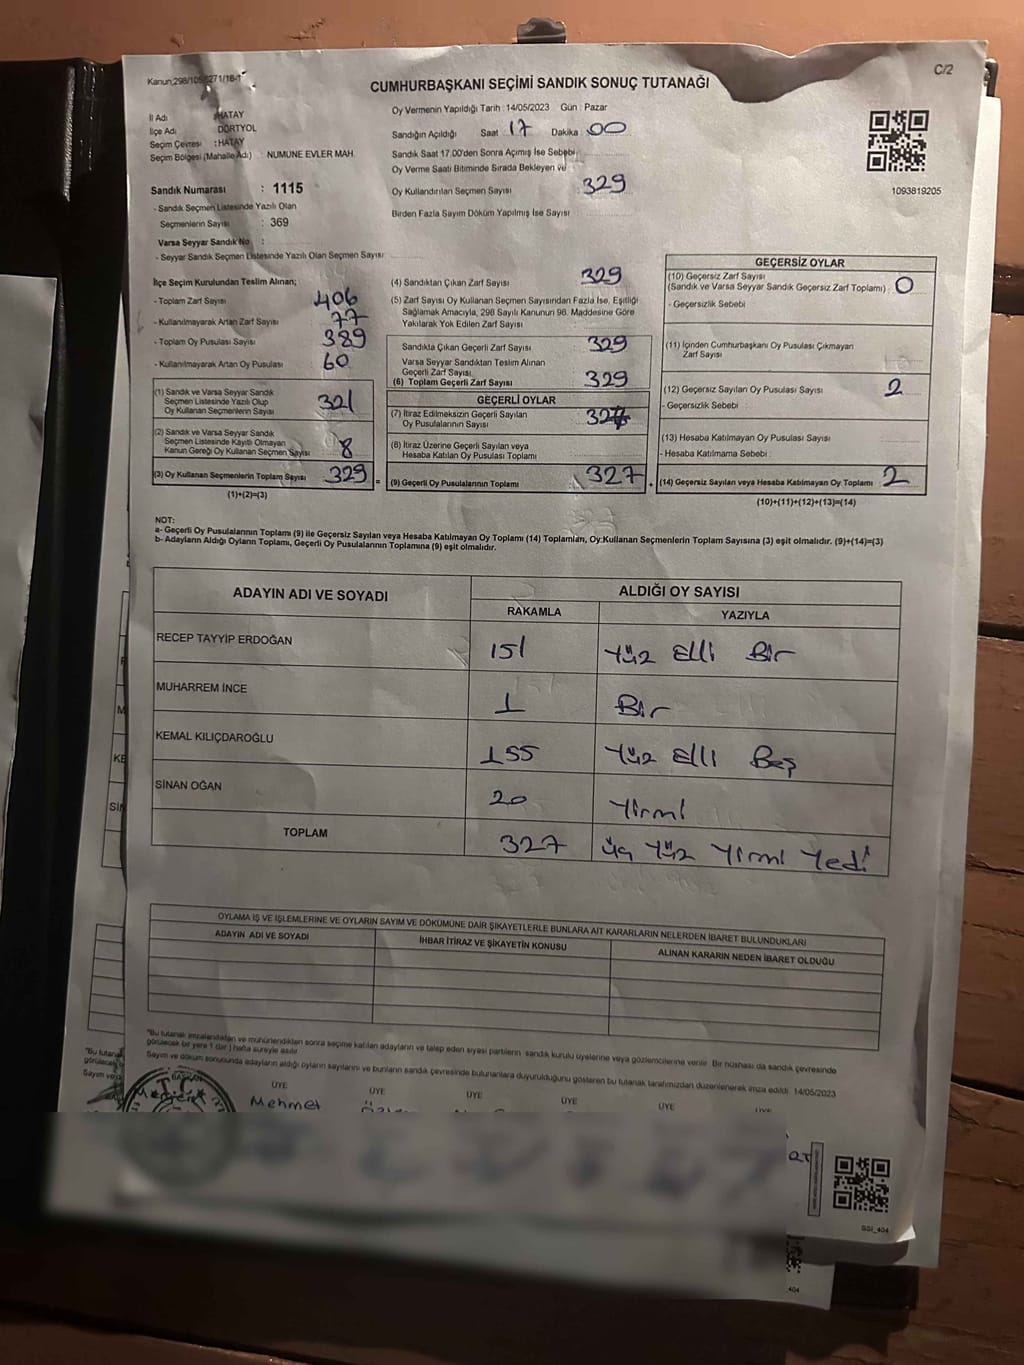 C/2
Kanun:298/105,6271/18-1
CUMHURBAŞKANI SEÇİMİ SANDIK SONUÇ TUTANAĞI
İl Adı : HATAY
İlçe Adı DÖRTYOL
Seçim Çevresi : HATAY
Seçim Bölgesi (Mahalle Adı) : NUMUNE EVLER MAH.
Sandık Numarası : 1115
- Sandık Seçmen Listesinde Yazılı Olan
Seçmenlerin Sayısı : 369
Varsa Seyyar Sandık No :
- Seyyar Sandık Seçmen Listesinde Yazılı Olan Seçmen Sayısı
Oy Vermenin Yapıldığı Tarih : 14/05/2023 Gün : Pazar
Sandığın Açıldığı Saat 17 Dakika : 00
Sandık Saat 17.00'den Sonra Açımış İse Sebebi
Oy Verme Saati Bitiminde Sırada Bekleyen ve
Oy Kullandırılan Seçmen Sayısı 329
Birden Fazla Sayım Döküm Yapılmış İse Sayısı
1093819205
İlçe Seçim Kurulundan Teslim Alınan;
- Toplam Zarf Sayısı 406
- Kullanılmayarak Artan Zarf Sayısı 77
- Toplam Oy Pusulası Sayısı 389
- Kullanılmayarak Artan Oy Pusulası 60
(1) Sandık ve Varsa Seyyar Sandık
Seçmen Listesinde Yazılı Olup
Oy Kullanan Seçmenlerin Sayısı 321
(2) Sandık ve Varsa Seyyar Sandık
Seçmen Listesinde Kayıtlı Olmayan
Kanun Gereği Oy Kullanan Seçmen Sayısı 8
(3) Oy Kullanan Seçmenlerin Toplam Sayısı 329 =
(1)+(2)=(3)
(4) Sandıktan Çıkan Zarf Sayısı 329
(5) Zarf Sayısı Oy Kullanan Seçmen Sayısından Fazla İse, Eşitliği
Sağlamak Amacıyla, 298 Sayılı Kanunun 98. Maddesine Göre
Yakılarak Yok Edilen Zarf Sayısı
Sandıkta Çıkan Geçerli Zarf Sayısı 329
Varsa Seyyar Sandıktan Teslim Alınan
Geçerli Zarf Sayısı
(6) Toplam Geçerli Zarf Sayısı 329
GEÇERLİ OYLAR
(7) İtiraz Edilmeksizin Geçerli Sayılan
Oy Pusulalarının Sayısı 327
(8) İtiraz Üzerine Geçerli Sayılan veya
Hesaba Katılan Oy Pusulası Toplamı
(9) Geçerli Oy Pusulalarının Toplamı 327
GEÇERSİZ OYLAR
(10) Geçersiz Zarf Sayısı
(Sandık ve Varsa Seyyar Sandık Geçersiz Zarf Toplamı) : 0
- Geçersizlik Sebebi
(11) İçinden Cumhurbaşkanı Oy Pusulası Çıkmayan
Zarf Sayısı
(12) Geçersiz Sayılan Oy Pusulası Sayısı 2
- Geçersizlik Sebebi
(13) Hesaba Katılmayan Oy Pusulası Sayısı
- Hesaba Katılmama Sebebi
(14) Geçersiz Sayılan veya Hesaba Katılmayan Oy Toplamı 2
(10)+(11)+(12)+(13)=(14)
NOT:
a- Geçerli Oy Pusulalarının Toplamı (9) ile Geçersiz Sayılan veya Hesaba Katılmayan Oy Toplamı (14) Toplamları, Oy Kullanan Seçmenlerin Toplam Sayısına (3) eşit olmalıdır. (9)+(14)=(3)
b- Adayların Aldığı Oyların Toplamı, Geçerli Oy Pusulalarının Toplamına (9) eşit olmalıdır.
ADAYIN ADI VE SOYADI ALDIĞI OY SAYISI
RAKAMLA YAZIYLA
RECEP TAYYİP ERDOĞAN 151 Yüz Elli Bir
MUHARREM İNCE 1 Bir
KEMAL KILIÇDAROĞLU 155 Yüz Elli Beş
SİNAN OĞAN 20 Yirmi
TOPLAM 327 üç Yüz Yirmi Yedi
OYLAMA İŞ VE İŞLEMLERİNE VE OYLARIN SAYIM VE DÖKÜMÜNE DAİR ŞİKAYETLERLE BUNLARA AİT KARARLARIN NELERDEN İBARET BULUNDUKLARI
ADAYIN ADI VE SOYADI İHBAR İTİRAZ VE ŞİKAYETİN KONUSU ALINAN KARARIN NEDEN İBARET OLDUĞU
"Bu tutanak imzalandıktan ve mühürlendikten sonra seçime katılan adayların ve talep eden siyasi partilerin sandık kurulu üyelerine veya gözlemcilerine verilir. Bir nüshası da sandık çevresinde
görülecek bir yere 1 (bir) hafta süreyle asılır.
Sayım ve döküm sonucunda adayların aldığı oyların sayılarını ve bunların sandık çevresinde bulunanlara duyurulduğunu gösteren bu tutanak tarafımızdan düzenlenerek imza edildi. 14/05/2023
BAŞKAN ÜYE ÜYE ÜYE ÜYE ÜYE
Mehmet
SSI_404
404